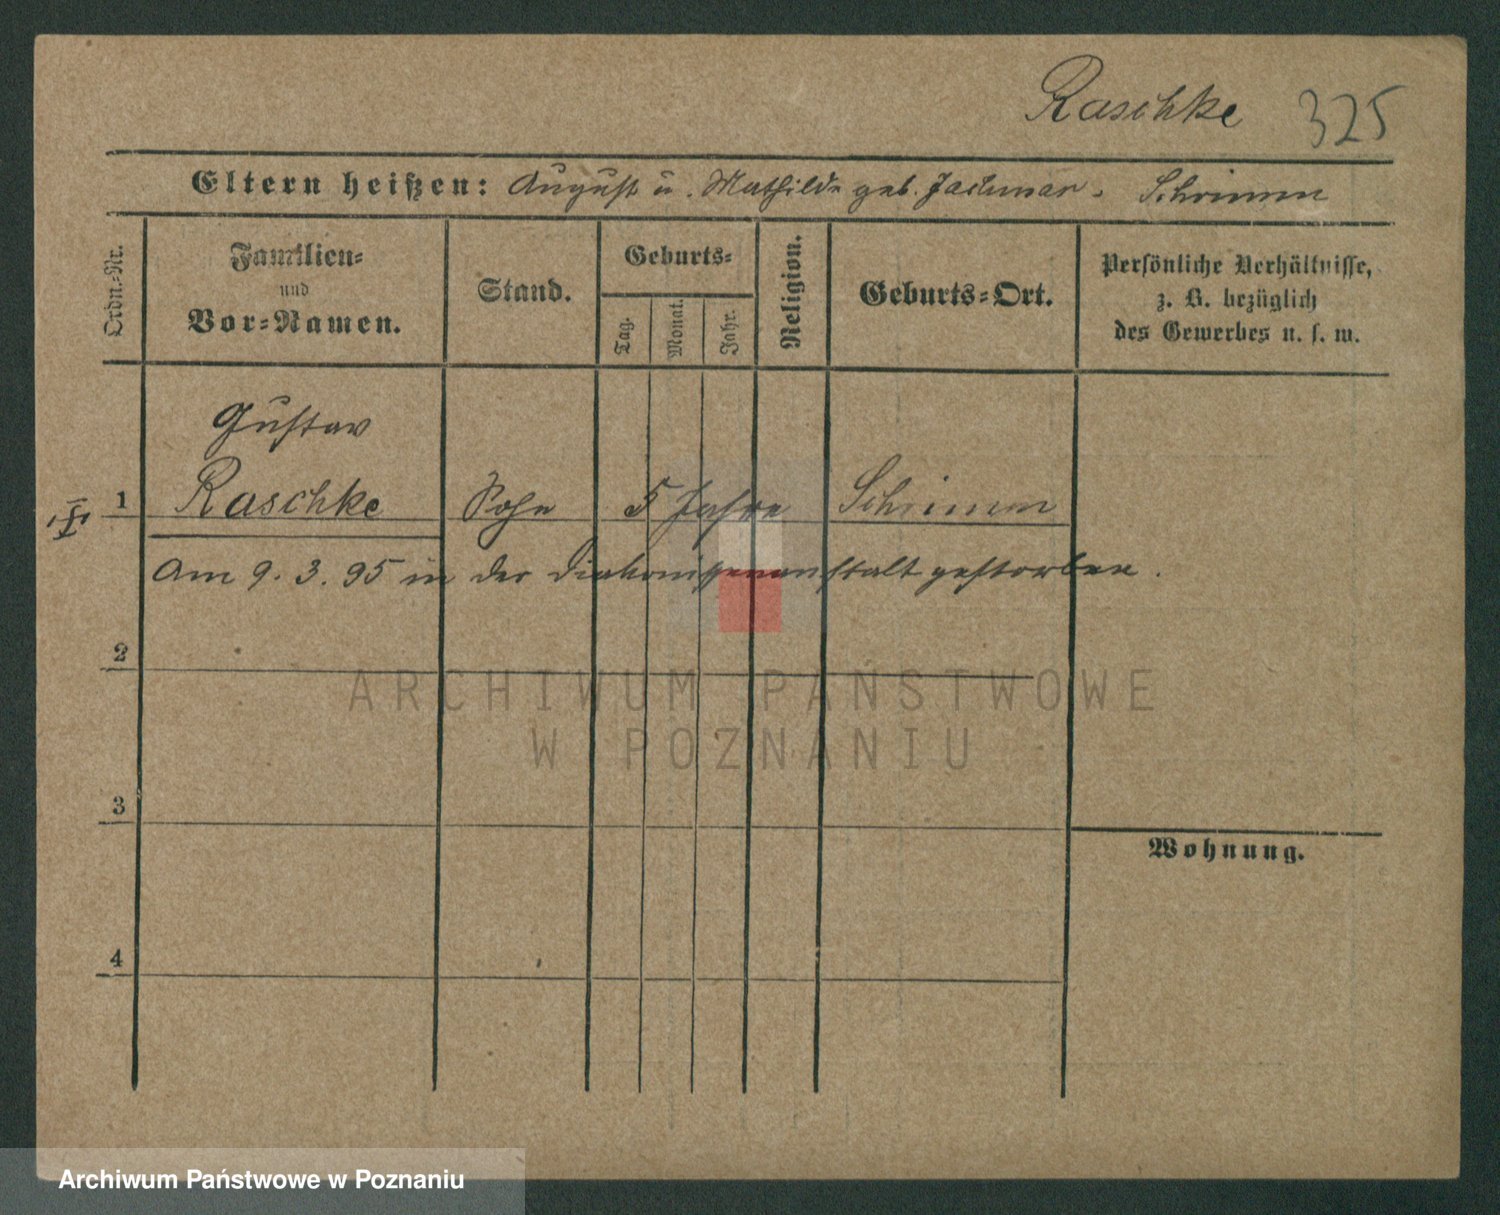 Raschke 325
Eltern heißen: August u. Mathilde geb. Jachmar. Schrimm
Ordn.-Nr.
Familien-
und
Vor-Namen.
Stand.
Geburts-
Tag.
Monat.
Jahr.
Religion.
Geburts-Ort.
Persönliche Verhältnisse,
z. B. bezüglich
des Gewerbes u. s. w.
Gustav
1 Raschke Sohn 5 Jahre Schrimm
Am 9. 3. 95 in der Diakonissenanstalt gestorben.
2
ARCHIWUM PAŃSTWOWE
W POZNANIU
3
Wohnung.
4
Archiwum Państwowe w Poznaniu